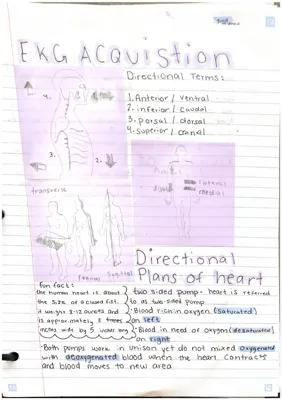 EKG ACQUISTION
Directional Terms:
1. Anterior / Ventral
2. inferior / caudal
3. porsal / dorsal
4. superior / cranial
4.
3.
2.
lateral
medial
transverse
Frontal
Sagittal
Directional
Plans of heart
fun fact:
the human heart is about
the size of a closed fist.
it weighs 8-12 ounces and
is approximately 5 inches
wide by
two sided pump - heart is referred
to as two-sided pump
Blood rich in oxygen (saturated)
on left
Blood in need of oxygen (desaturated)
on right
Both pumps work in unison yet do not mixed oxygenated
with deoxygenated blood when the heart contracts
and blood moves to new area